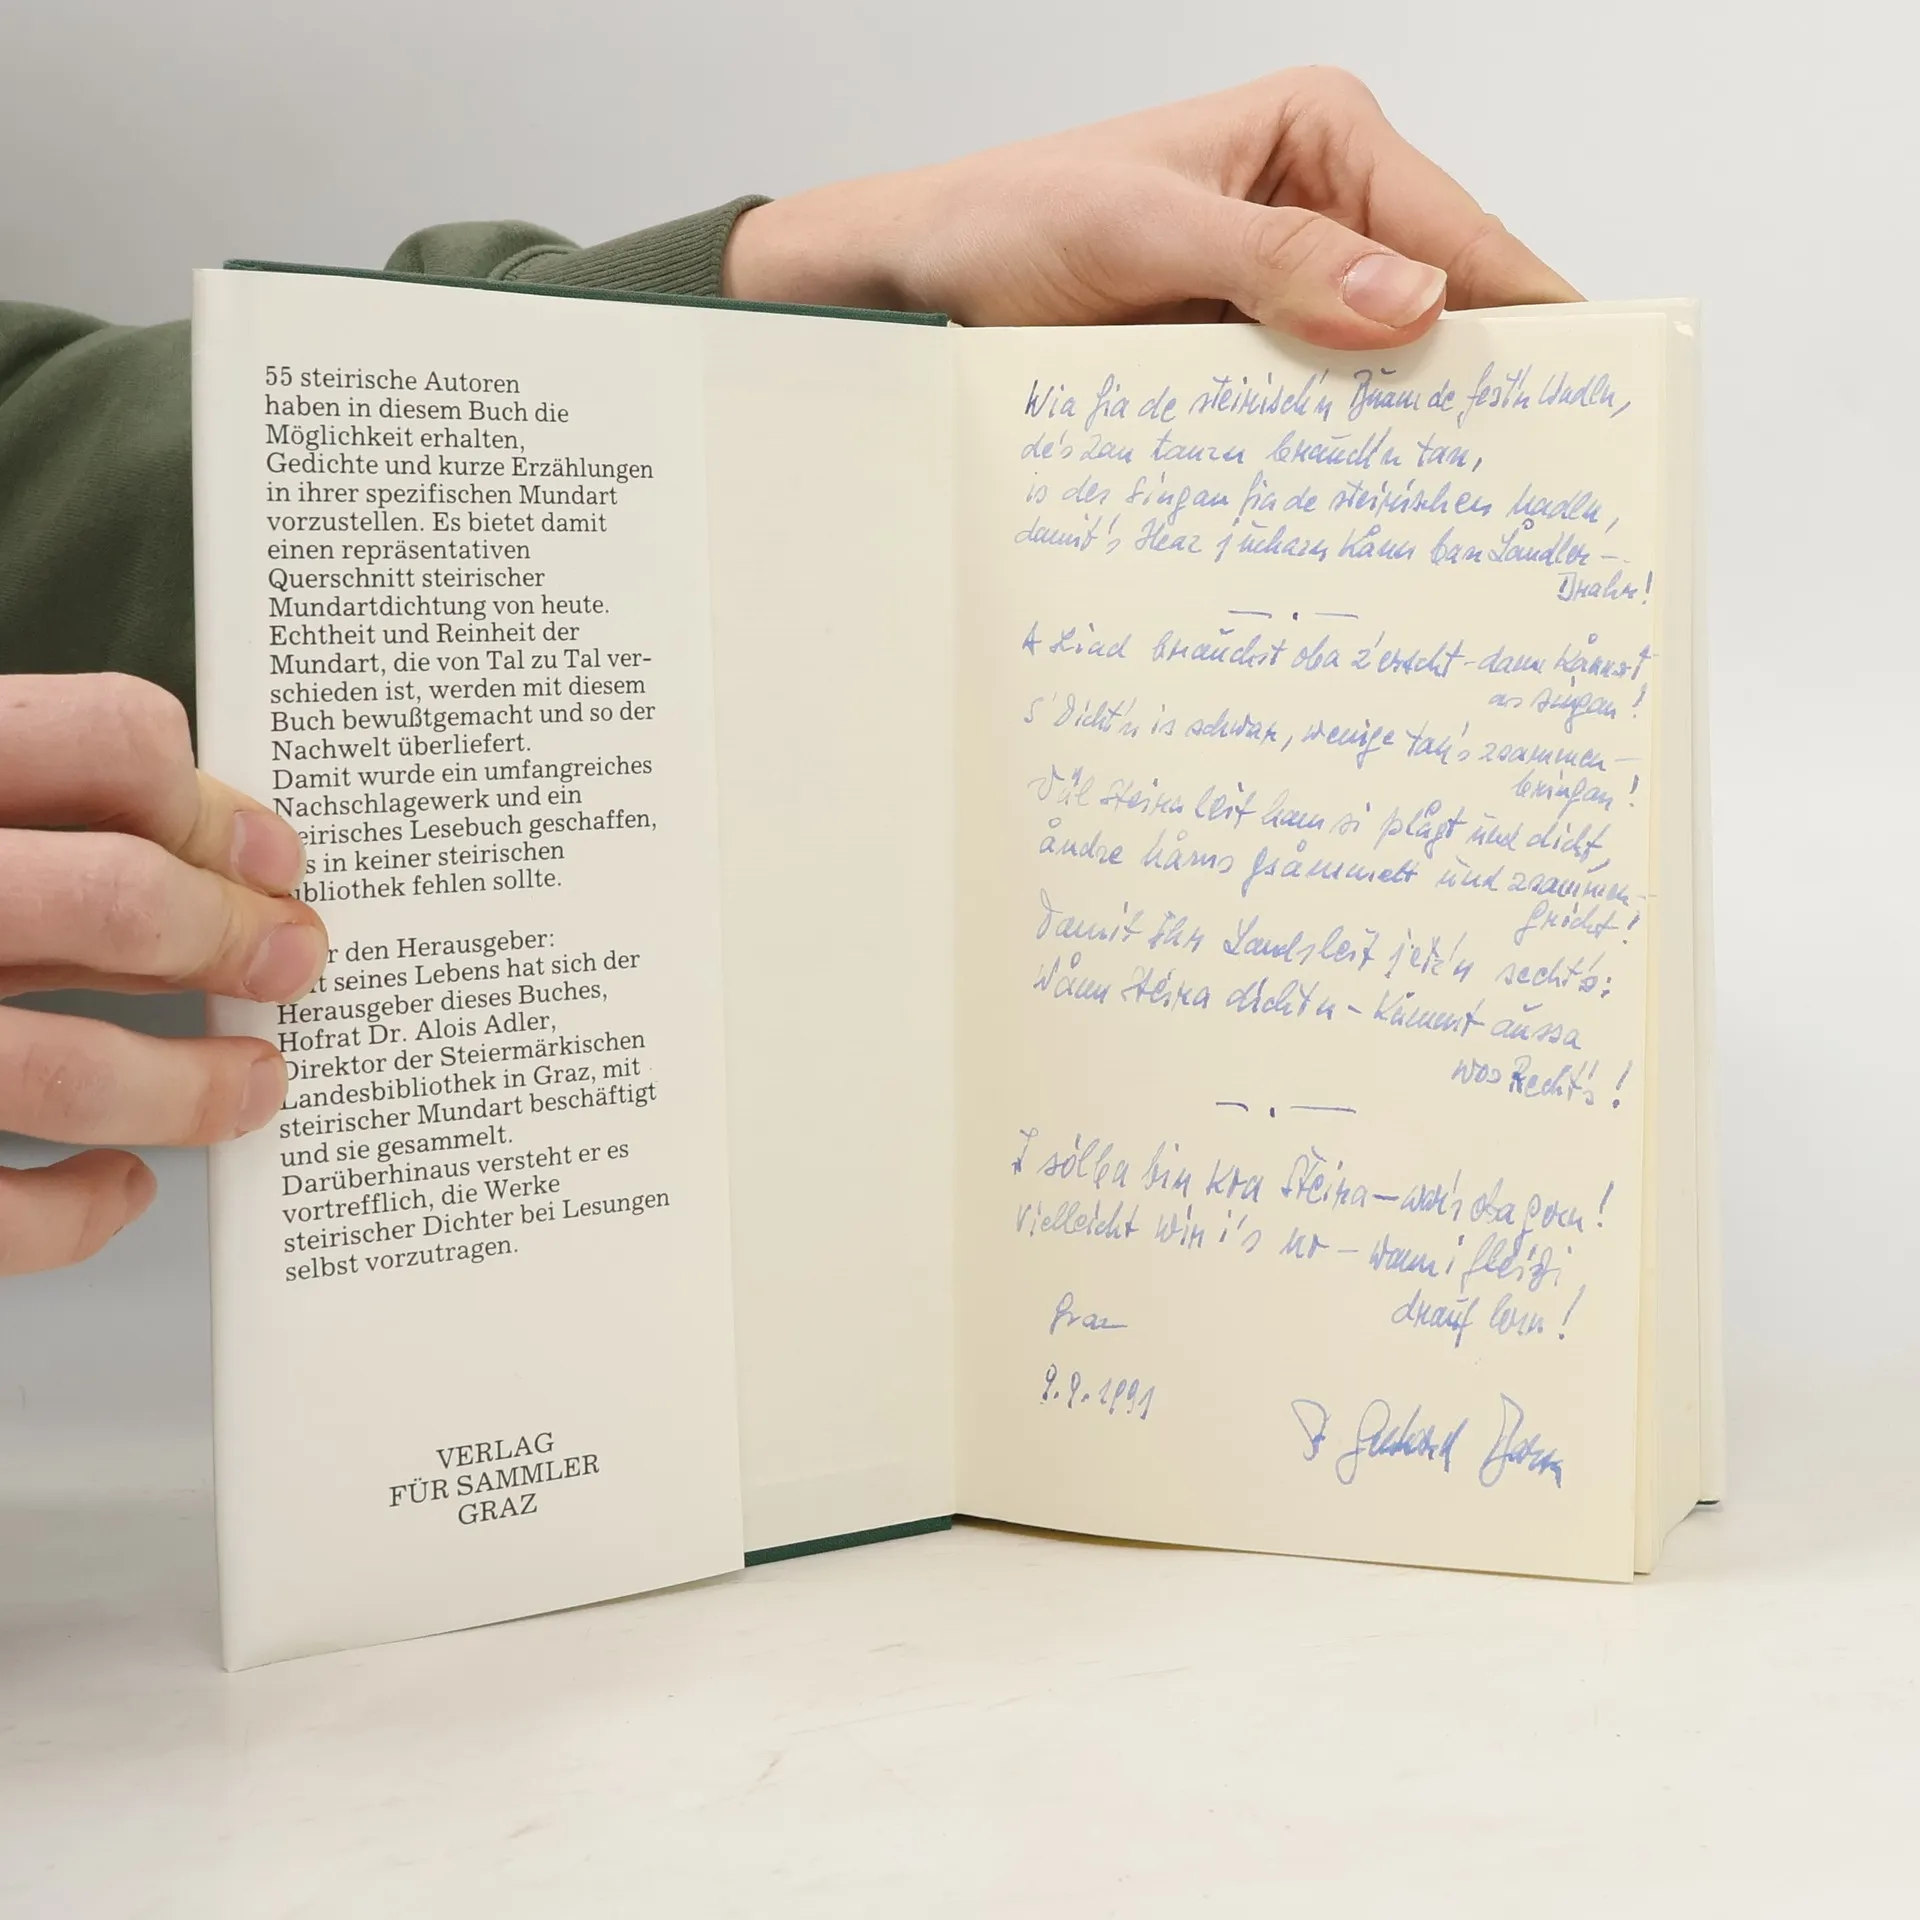 55 steirische Autoren
haben in diesem Buch die
Möglichkeit erhalten,
Gedichte und kurze Erzählungen
in ihrer spezifischen Mundart
vorzustellen. Es bietet damit
einen repräsentativen
Querschnitt steirischer
Mundartdichtung von heute.
Echtheit und Reinheit der
Mundart, die von Tal zu Tal ver-
schieden ist, werden mit diesem
Buch bewußtgemacht und so der
Nachwelt überliefert.
Damit wurde ein umfangreiches
Nachschlagewerk und ein
eirisches Lesebuch geschaffen,
s in keiner steirischen
ibliothek fehlen sollte.
r den Herausgeber:
t seines Lebens hat sich der
Herausgeber dieses Buches,
Hofrat Dr. Alois Adler,
Direktor der Steiermärkischen
Landesbibliothek in Graz, mit
steirischer Mundart beschäftigt
und sie gesammelt.
Darüberhinaus versteht er es
vortrefflich, die Werke
steirischer Dichter bei Lesungen
selbst vorzutragen.
VERLAG
FÜR SAMMLER
GRAZ
Wia fia de steirisch'n Buam de fest'n Wadln,
de's zan tanzn brauch'n tan,
is des Singan fia de steirischen Madln,
damit's Herz juchazn kånn ban Låndler-
Drahn!
A Liad brauchst oba z'erscht - dann kånnst
as singan!
S' Dicht'n is schwar, wenige tan's zsammen-
bringan!
Vül Steira leit ham si plågt und dicht,
åndre håms gsåmmelt und zsammen-
gricht!
Damit Ihr Landsleit jetz'n secht's:
Wånn Steira dichtn - kummt aussa
wos Recht's!
I sölba bin koa Steira - war's oba gern!
Vielleicht wir i's no - wann i fleißi
drauf lern!
Graz
9.9.1991
Gerhard